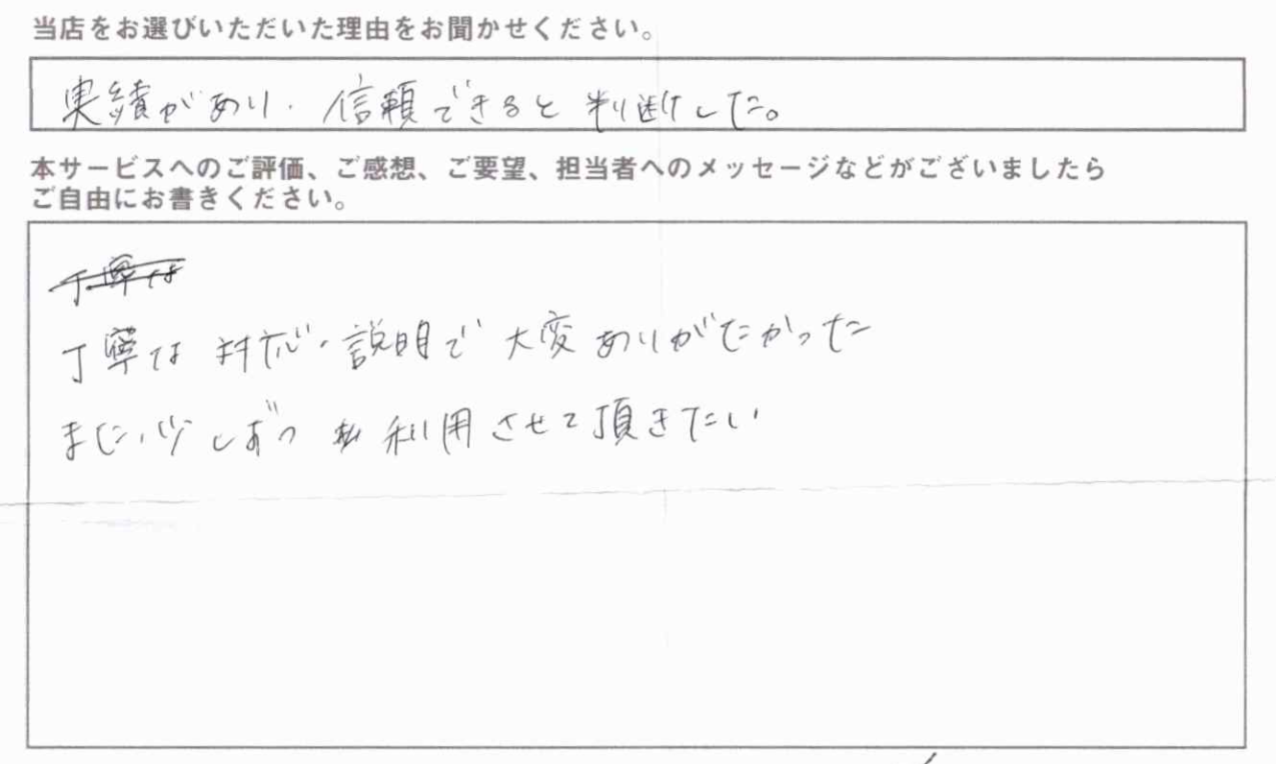 当店をお選びいただいた理由をお聞かせください。
実績があり、信頼できると判断した。
本サービスへのご評価、ご感想、ご要望、担当者へのメッセージなどがございましたら
ご自由にお書きください。
丁寧な
丁寧な対応・説明で大変ありがたかった
また、少しずつ利用させて頂きたい